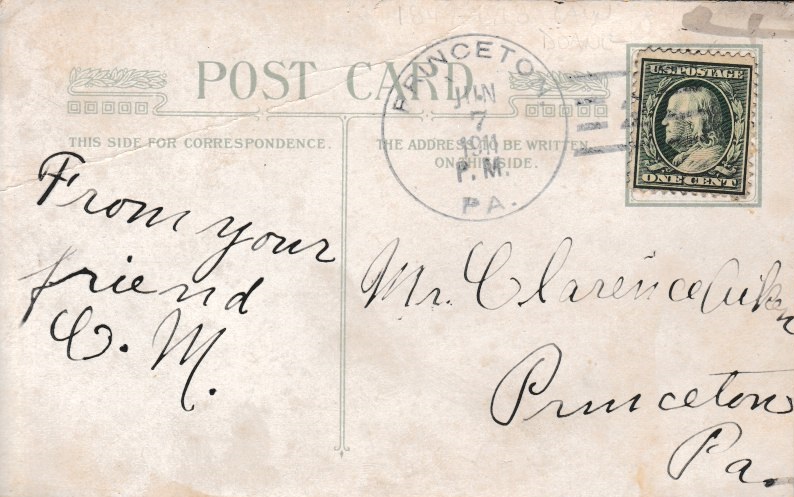 POST CARD
THIS SIDE FOR CORRESPONDENCE.
THE ADDRESS TO BE WRITTEN
ON THIS SIDE.
PRINCETON
JUN
7
1911
P.M.
PA.
U.S. POSTAGE
ONE CENT
From your
friend
C. M.
Mr. Clarence Aiken
Princeton
Pa.